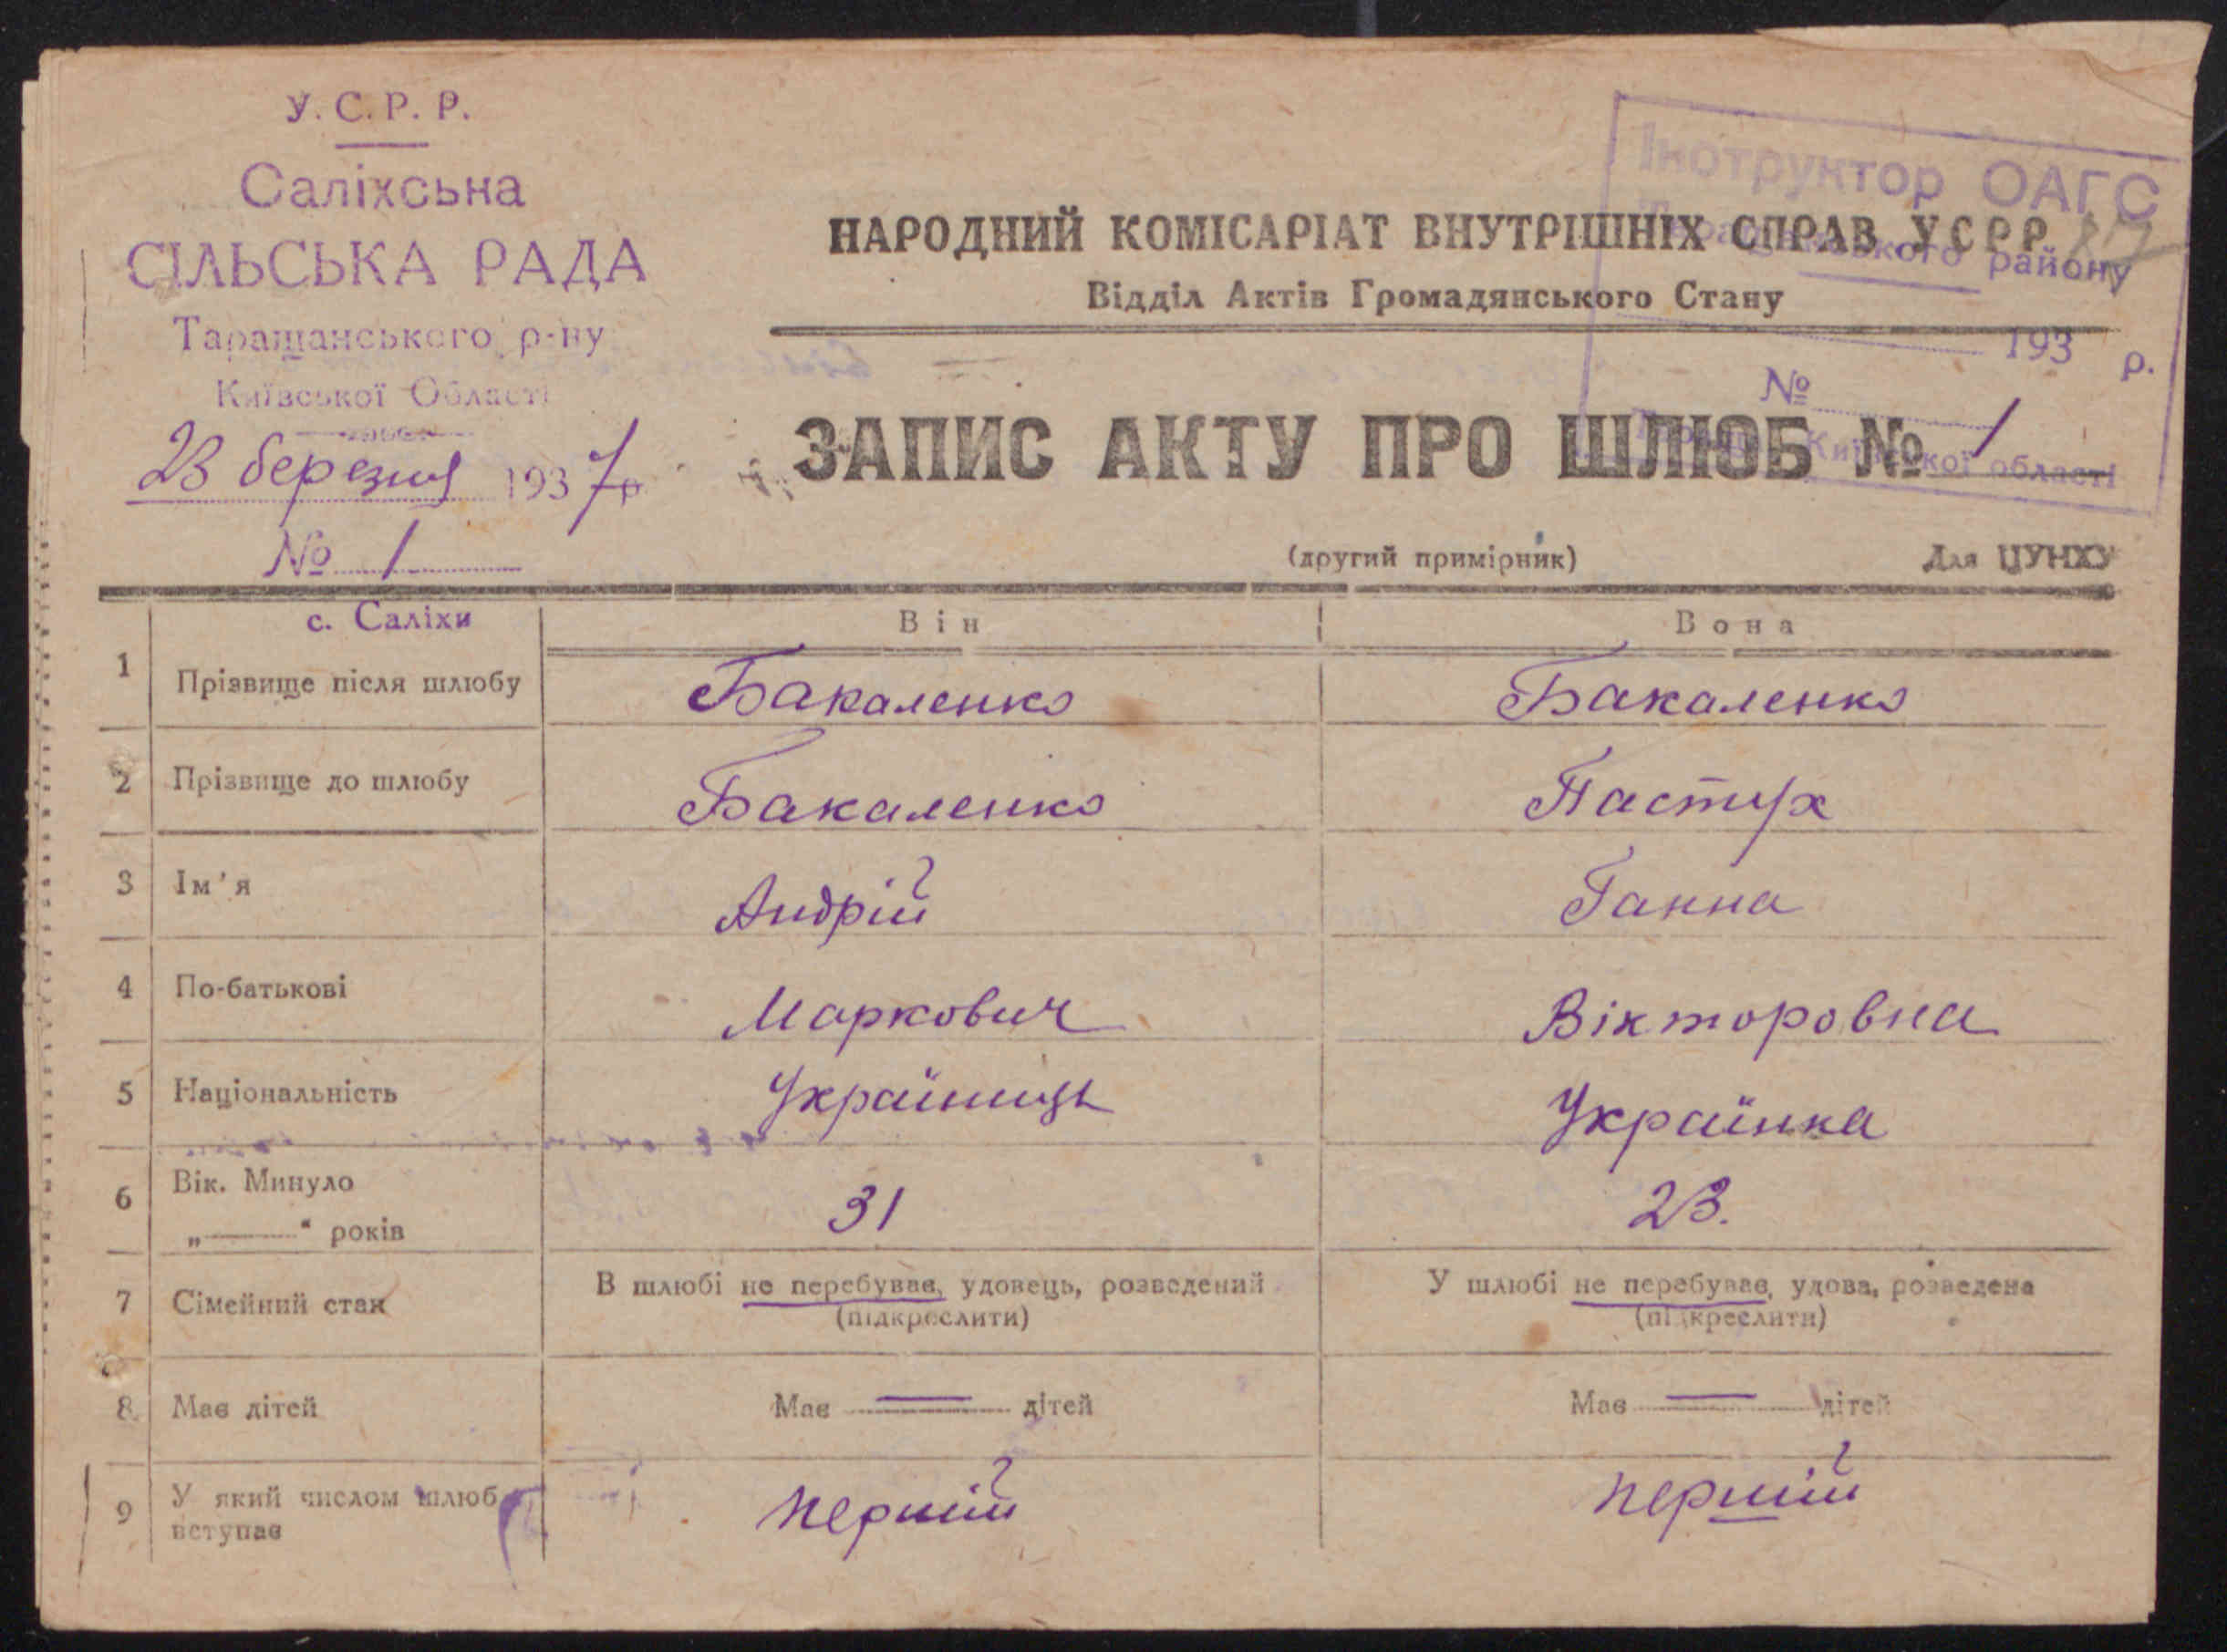 У. С. Р. Р.
Саліхсьна
СІЛЬСЬКА РАДА
Таращанського р-ну
Київської Області
23 березня 1937 р
№ 1
Інструктор ОАГС
Таращанського району
193 р.
№
Київської області
НАРОДНИЙ КОМІСАРІАТ ВНУТРІШНІХ СПРАВ УСРР
Відділ Актів Громадянського Стану
ЗАПИС АКТУ ПРО ШЛЮБ № 1
(другий примірник) Для ЦУНХУ
с. Саліхи
Він Вона
1 Прізвище після шлюбу Бакаленко Бакаленко
2 Прізвище до шлюбу Бакаленко Пастух
3 Ім'я Андрій Ганна
4 По-батькові Маркович Вікторовна
5 Національність Україниць Українка
6 Вік. Минуло
„——“ років 31 23.
7 Сімейний стан В шлюбі не перебував, удовець, розведений У шлюбі не перебував, удова, розведена
(підкреслити) (підкреслити)
8 Має дітей Має — дітей Має — дітей
9 У який числом шлюб
вступає перший перший